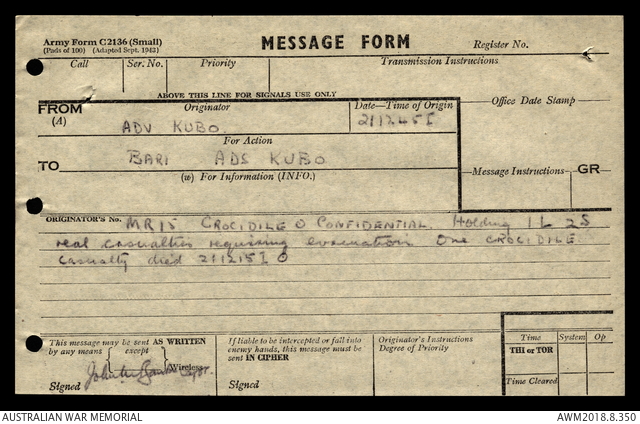 Army Form C2136 (Small)
(Pads of 100) (Adapted Sept. 1942)
MESSAGE FORM
Register No.
Call
Ser. No.
Priority
Transmission Instructions
ABOVE THIS LINE FOR SIGNALS USE ONLY
FROM
(A)
Originator
Date—Time of Origin
Office Date Stamp
ADV KUBO
211245 I
For Action
TO
BARI ADS KUBO
(w) For Information (INFO.)
Message Instructions
GR
ORIGINATOR'S No.
MR15 CROCIDILE O CONFIDENTIAL. Holding 1 L 2S
real casualties requiring evacuation. One CROCIDILE
casualty died 211215 I O
This message may be sent AS WRITTEN
by any means
except
Wireless
Signed
If liable to be intercepted or fall into
enemy hands, this message must be
sent IN CIPHER
Signed
Originator's Instructions
Degree of Priority
Time
System
Op
THI or TOR
Time Cleared
AUSTRALIAN WAR MEMORIAL
AWM2018.8.350